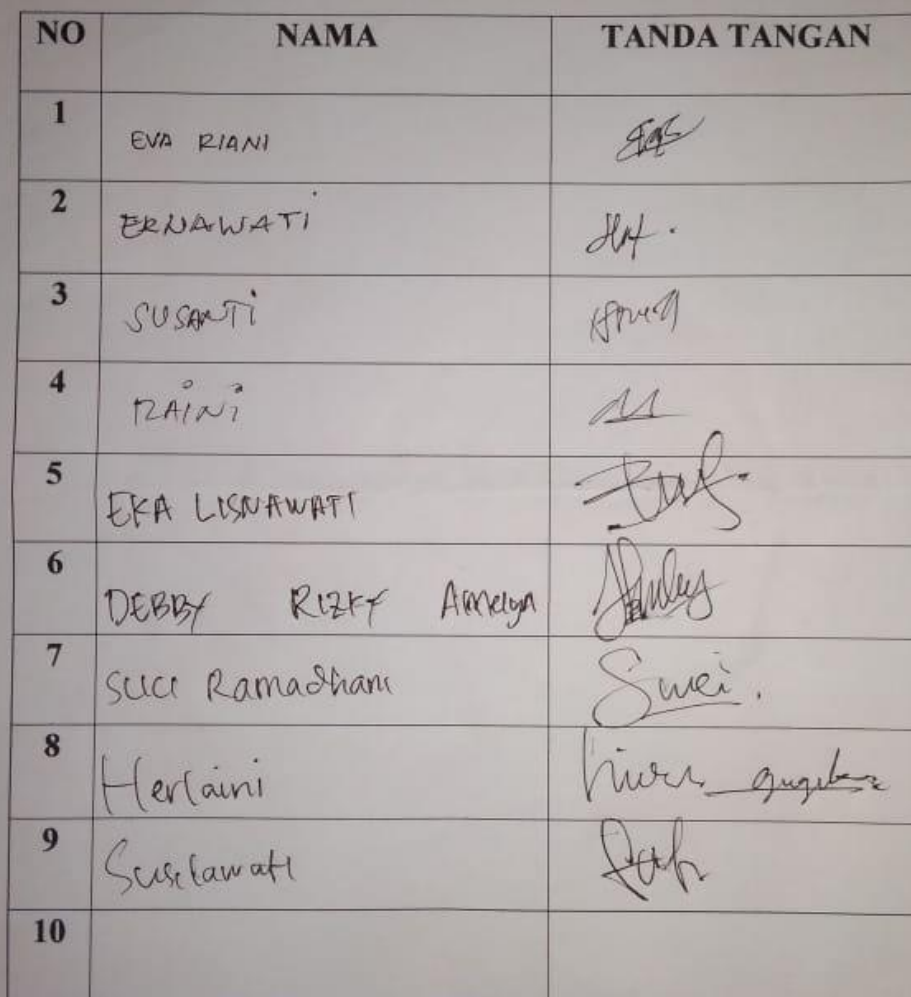 NO NAMA TANDA TANGAN
1 EVA RIANI
2 ERNAWATI
3 SUSANTI
4 RAINI
5 EKA LISNAWATI
6 DEBBY RIZKY Amelya
7 SUCI Ramadhani Suci.
8 Herlaini
9 Susilawati
10